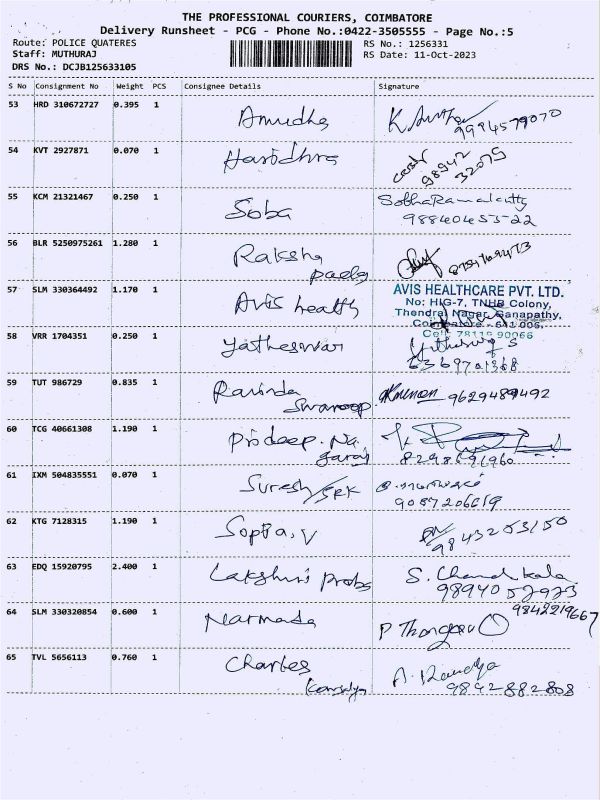 THE PROFESSIONAL COURIERS, COIMBATORE
Delivery Runsheet - PCG - Phone No.:0422-3505555 - Page No.:5
Route: POLICE QUATERES
RS No.: 1256331
Staff: MUTHURAJ
RS Date: 11-Oct-2023
DRS No.: DCJB125633105
S No Consignment No Weight PCS Consignee Details Signature
53 HRD 310672727 0.395 1 Anudha K
9994579070
54 KVT 2927871 0.070 1 Haridhra
98942
32075
55 KCM 21321467 0.250 1 Soba SobhaRamalcutty
98840453-22
56 BLR 5250975261 1.280 1 Raksha
8754769473
57 SLM 330364492 1.170 1 Avis health
AVIS HEALTHCARE PVT. LTD.
No: HIG-7, TNHB Colony,
Thendral Nagar, Ganapathy,
Coimbatore - 641 006.
Cell: 78115 90066
58 VRR 1704351 0.250 1 Yatheswar
6369701368
59 TUT 986729 0.835 1 Ravinda
Swaroop
9629489492
60 TCG 40661308 1.190 1 Prodeep. Na
garaj
8298696960
61 IXM 504835551 0.070 1 Suresh/SRK
9087206619
62 KTG 7128315 1.190 1 Sopia, V
9843203150
63 EDQ 15920795 2.400 1 Lakshmi Probs S. Chandkala
9894052973
64 SLM 330320854 0.600 1 Narmada
9842219667
P Thangam
65 TVL 5656113 0.760 1 Charles
Kansalya
A.
9842882808